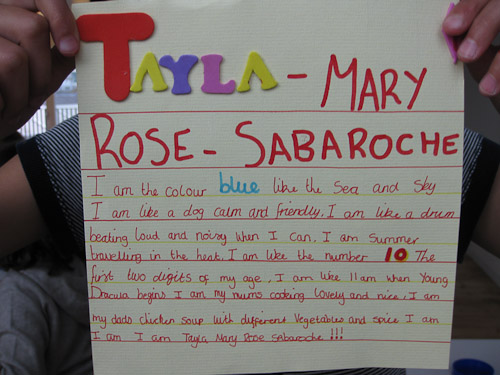 TAYLA - MARY
ROSE - SABAROCHE
I am the colour blue like the sea and sky
I am like a dog calm and friendly. I am like a drum
beating loud and noisy when I can. I am summer
travelling in the heat. I am like the number 10 The
first two digits of my age, I am like 11am when Young
Dracula begins I am my mums cooking lovely and nice, I am
my dads chicken soup with different vegetables and spice I am
I am I am Tayla, Mary Rose Sabaroche !!!